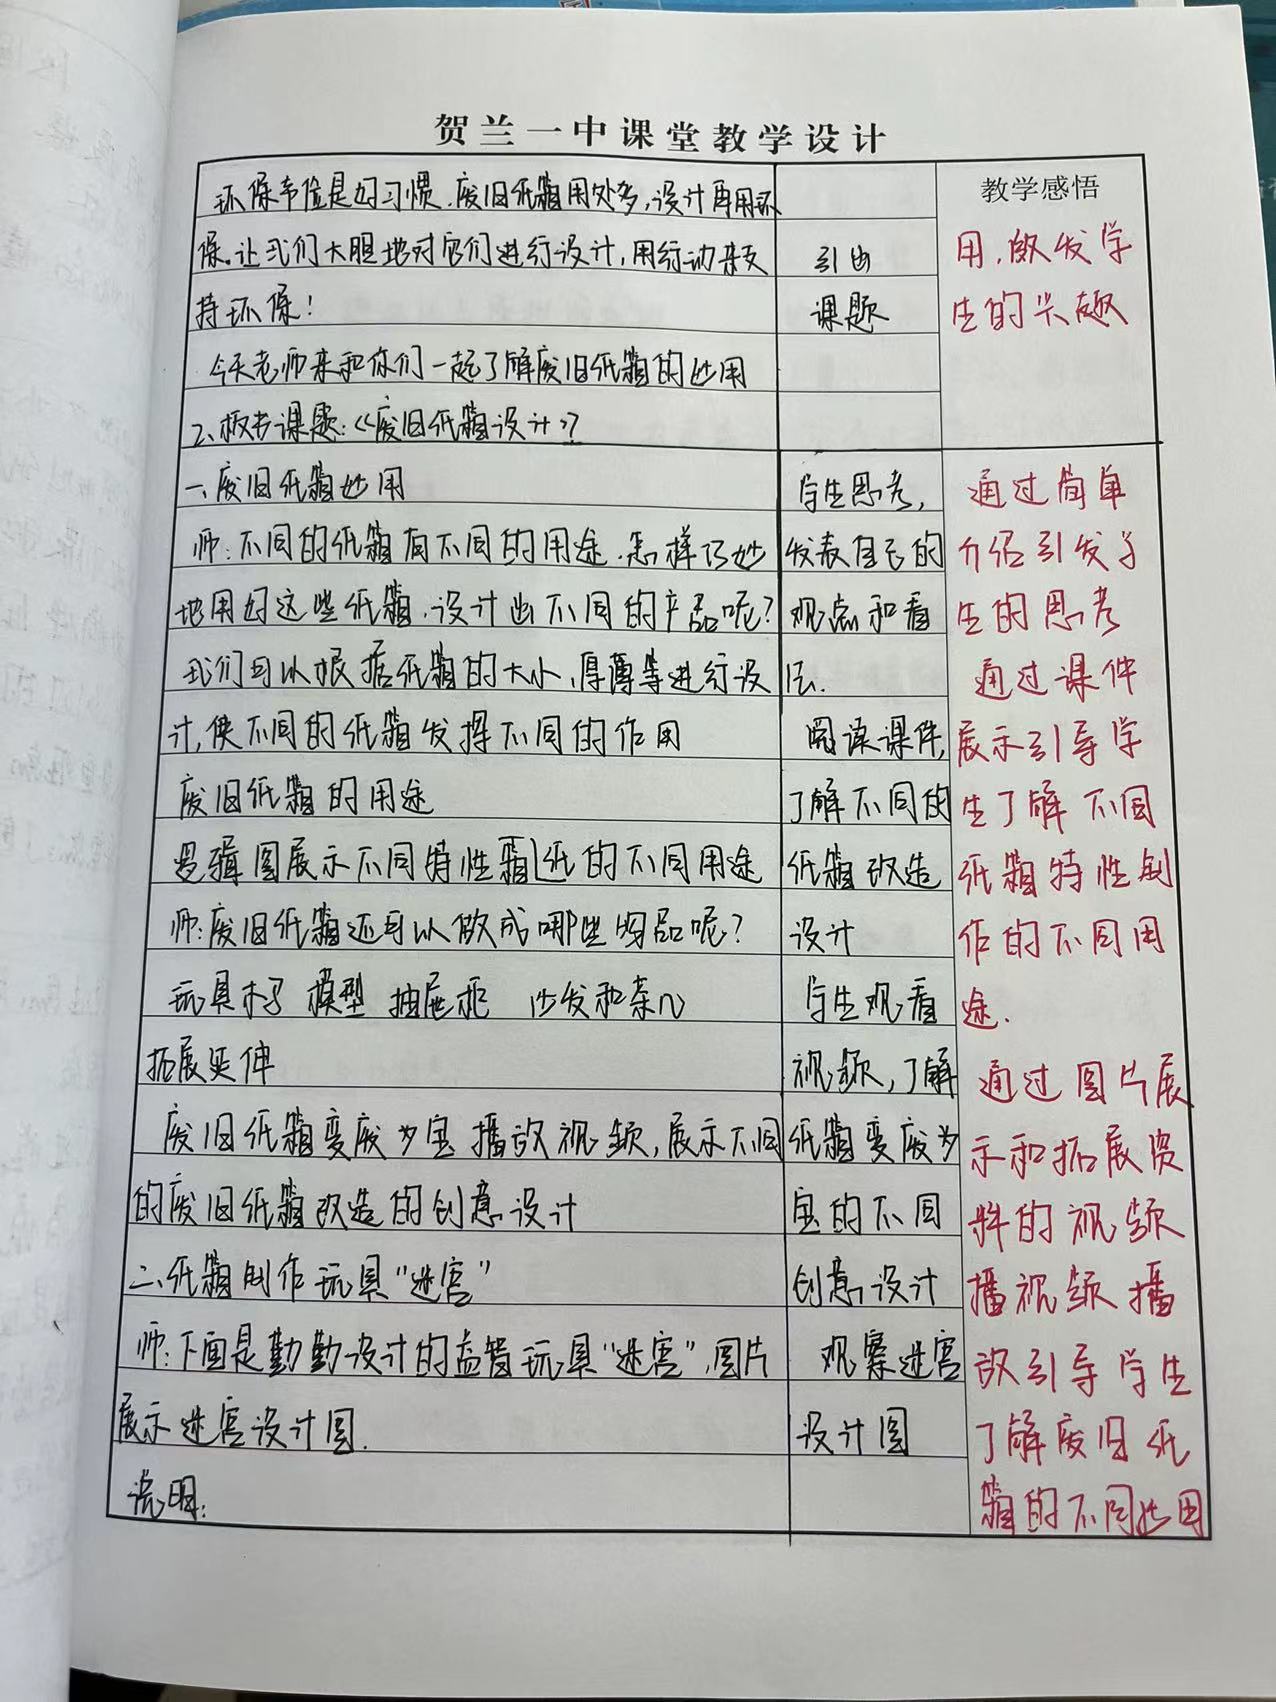 贺兰一中课堂教学设计
环保节俭是好习惯.废旧纸箱用处多,设计再用环
保。让我们大胆地对它们进行设计,用行动来支
持环保!
今天老师来和你们一起了解废旧纸箱的妙用
2、板书课题:《废旧纸箱设计》
一、废旧纸箱妙用
师:不同的纸箱有不同的用途.怎样巧妙
地用好这些纸箱.设计出不同的产品呢?
我们可以根据纸箱的大小、厚薄等进行设
计,使不同的纸箱发挥不同的作用
废旧纸箱的用途
逻辑图展示不同特性箱纸的不同用途
师:废旧纸箱还可以做成哪些物品呢?
玩具柜子 模型 抽屉柜 沙发和茶几
拓展延伸
废旧纸箱变废为宝播放视频,展示不同
的废旧纸箱改造的创意设计
二、纸箱制作玩具"迷宫"
师:下面是勤勤设计的益智玩具"迷宫",图片
展示迷宫设计图.
说明:
引出
课题
学生思考,
发表自己的
观点和看
法.
阅读课件,
了解不同的
纸箱改造
设计
学生观看
视频,了解
纸箱变废为
宝的不同
创意设计
观察迷宫
设计图
教学感悟
用,启发学
生的兴趣
通过简单
介绍引发学
生的思考
通过课件
展示引导学
生了解不同
纸箱特性制
作的不同用
途.
通过图片展
示和拓展资
料的视频
播视频播
放引导学生
了解废旧纸
箱的不同妙用